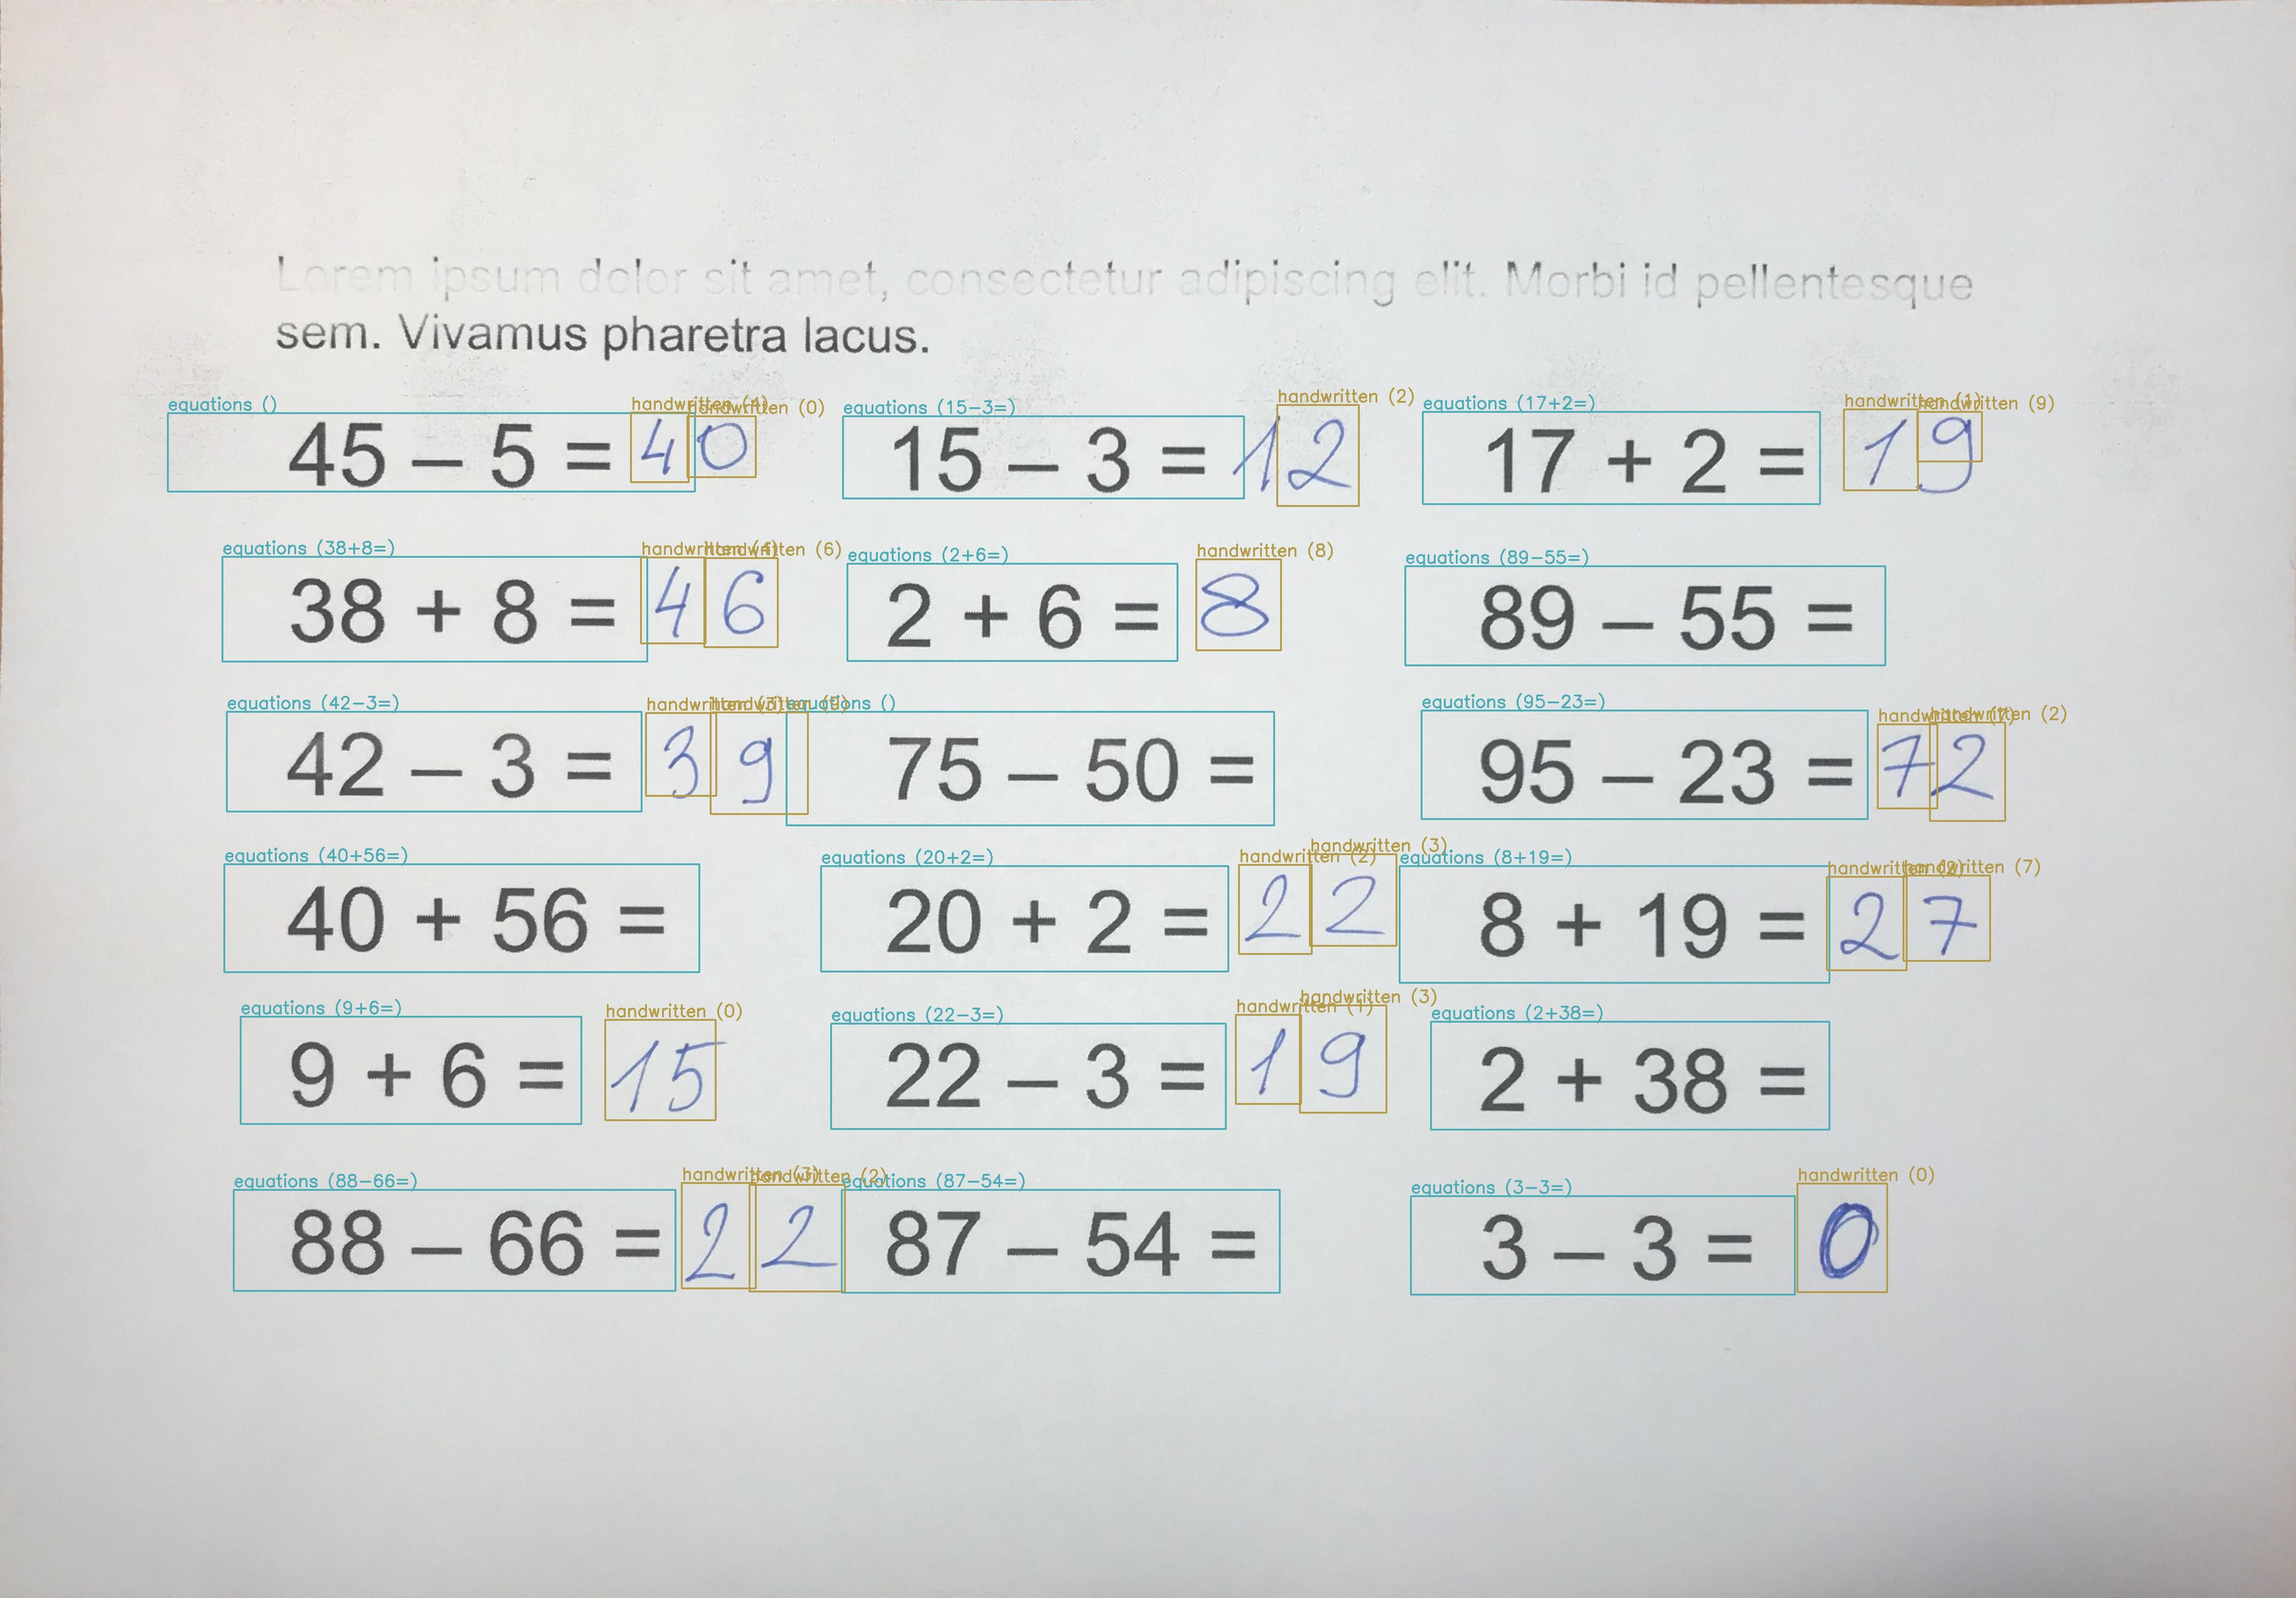 Lorem ipsum dolor sit amet, consectetur adipiscing elit. Morbi id pellentesque
sem. Vivamus pharetra lacus.
equations () handwritten (4) handwritten (0) equations (15-3=) handwritten (2) equations (17+2=) handwritten (1) handwritten (9)
45 – 5 = 40 15 – 3 = 12 17 + 2 = 19
equations (38+8=) handwritten (4) handwritten (6) equations (2+6=) handwritten (8) equations (89-55=)
38 + 8 = 46 2 + 6 = 8 89 – 55 =
equations (42-3=) handwritten (3) handwritten (9) equations () equations (95-23=) handwritten (7) handwritten (2)
42 – 3 = 39 75 – 50 = 95 – 23 = 72
equations (40+56=) equations (20+2=) handwritten (2) handwritten (3) equations (8+19=) handwritten (2) handwritten (7)
40 + 56 = 20 + 2 = 22 8 + 19 = 27
equations (9+6=) handwritten (0) equations (22-3=) handwritten (1) handwritten (3) equations (2+38=)
9 + 6 = 15 22 – 3 = 19 2 + 38 =
equations (88-66=) handwritten (3) handwritten (2) equations (87-54=) equations (3-3=) handwritten (0)
88 – 66 = 22 87 – 54 = 3 – 3 = 0